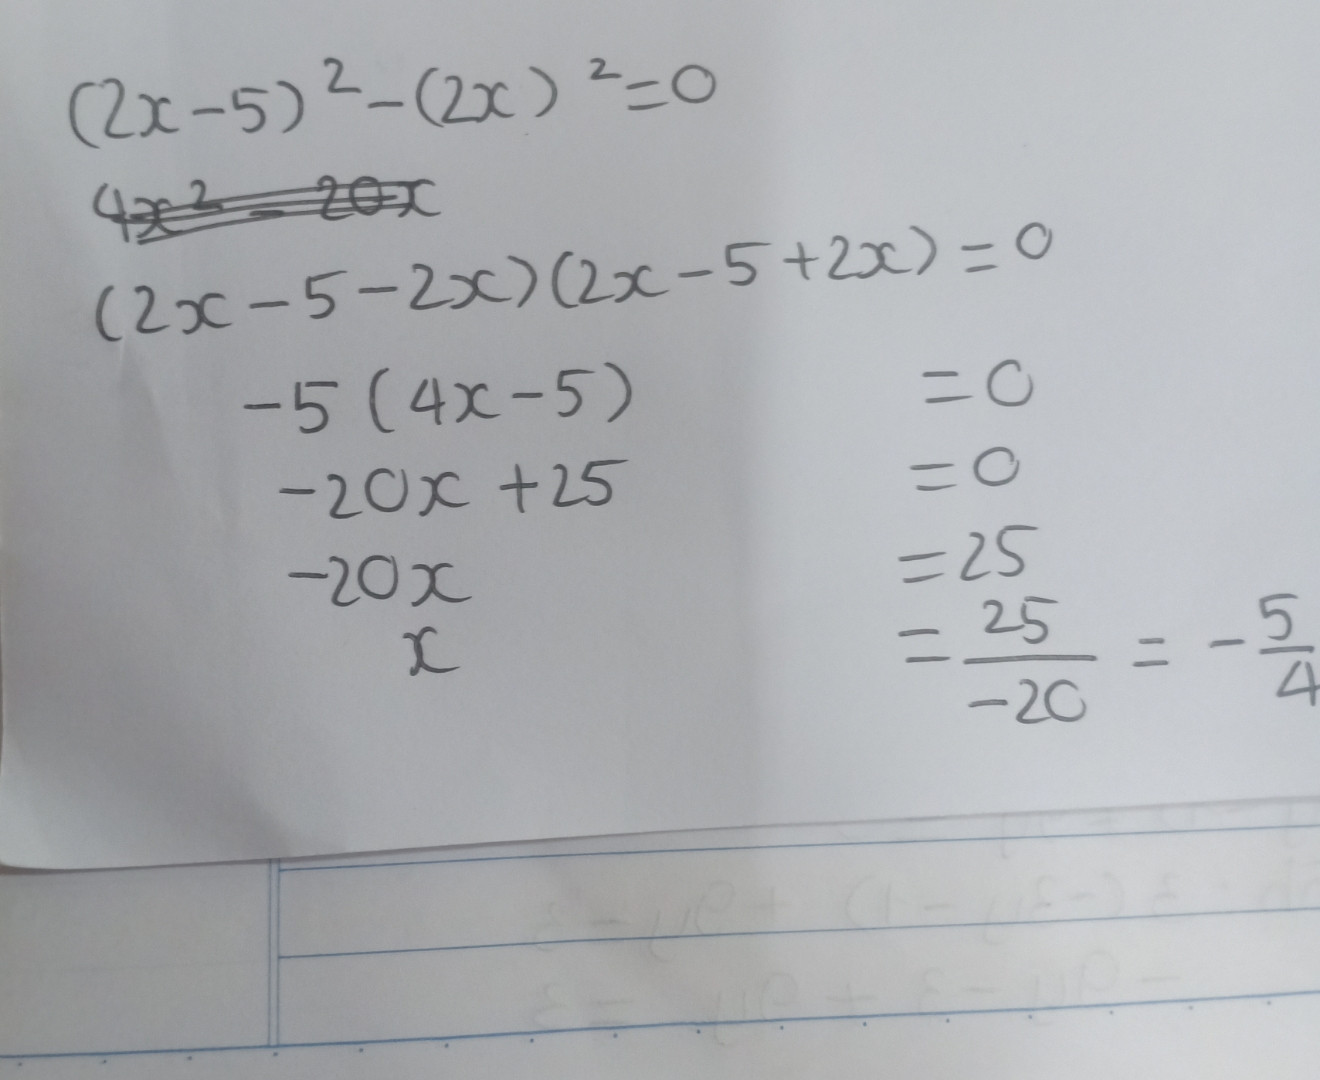 (2x-5)²-(2x)²=0
4x²-20x
(2x-5-2x)(2x-5+2x)=0
-5(4x-5) =0
-20x+25 =0
-20x =25
x =25/-20 = -5/4